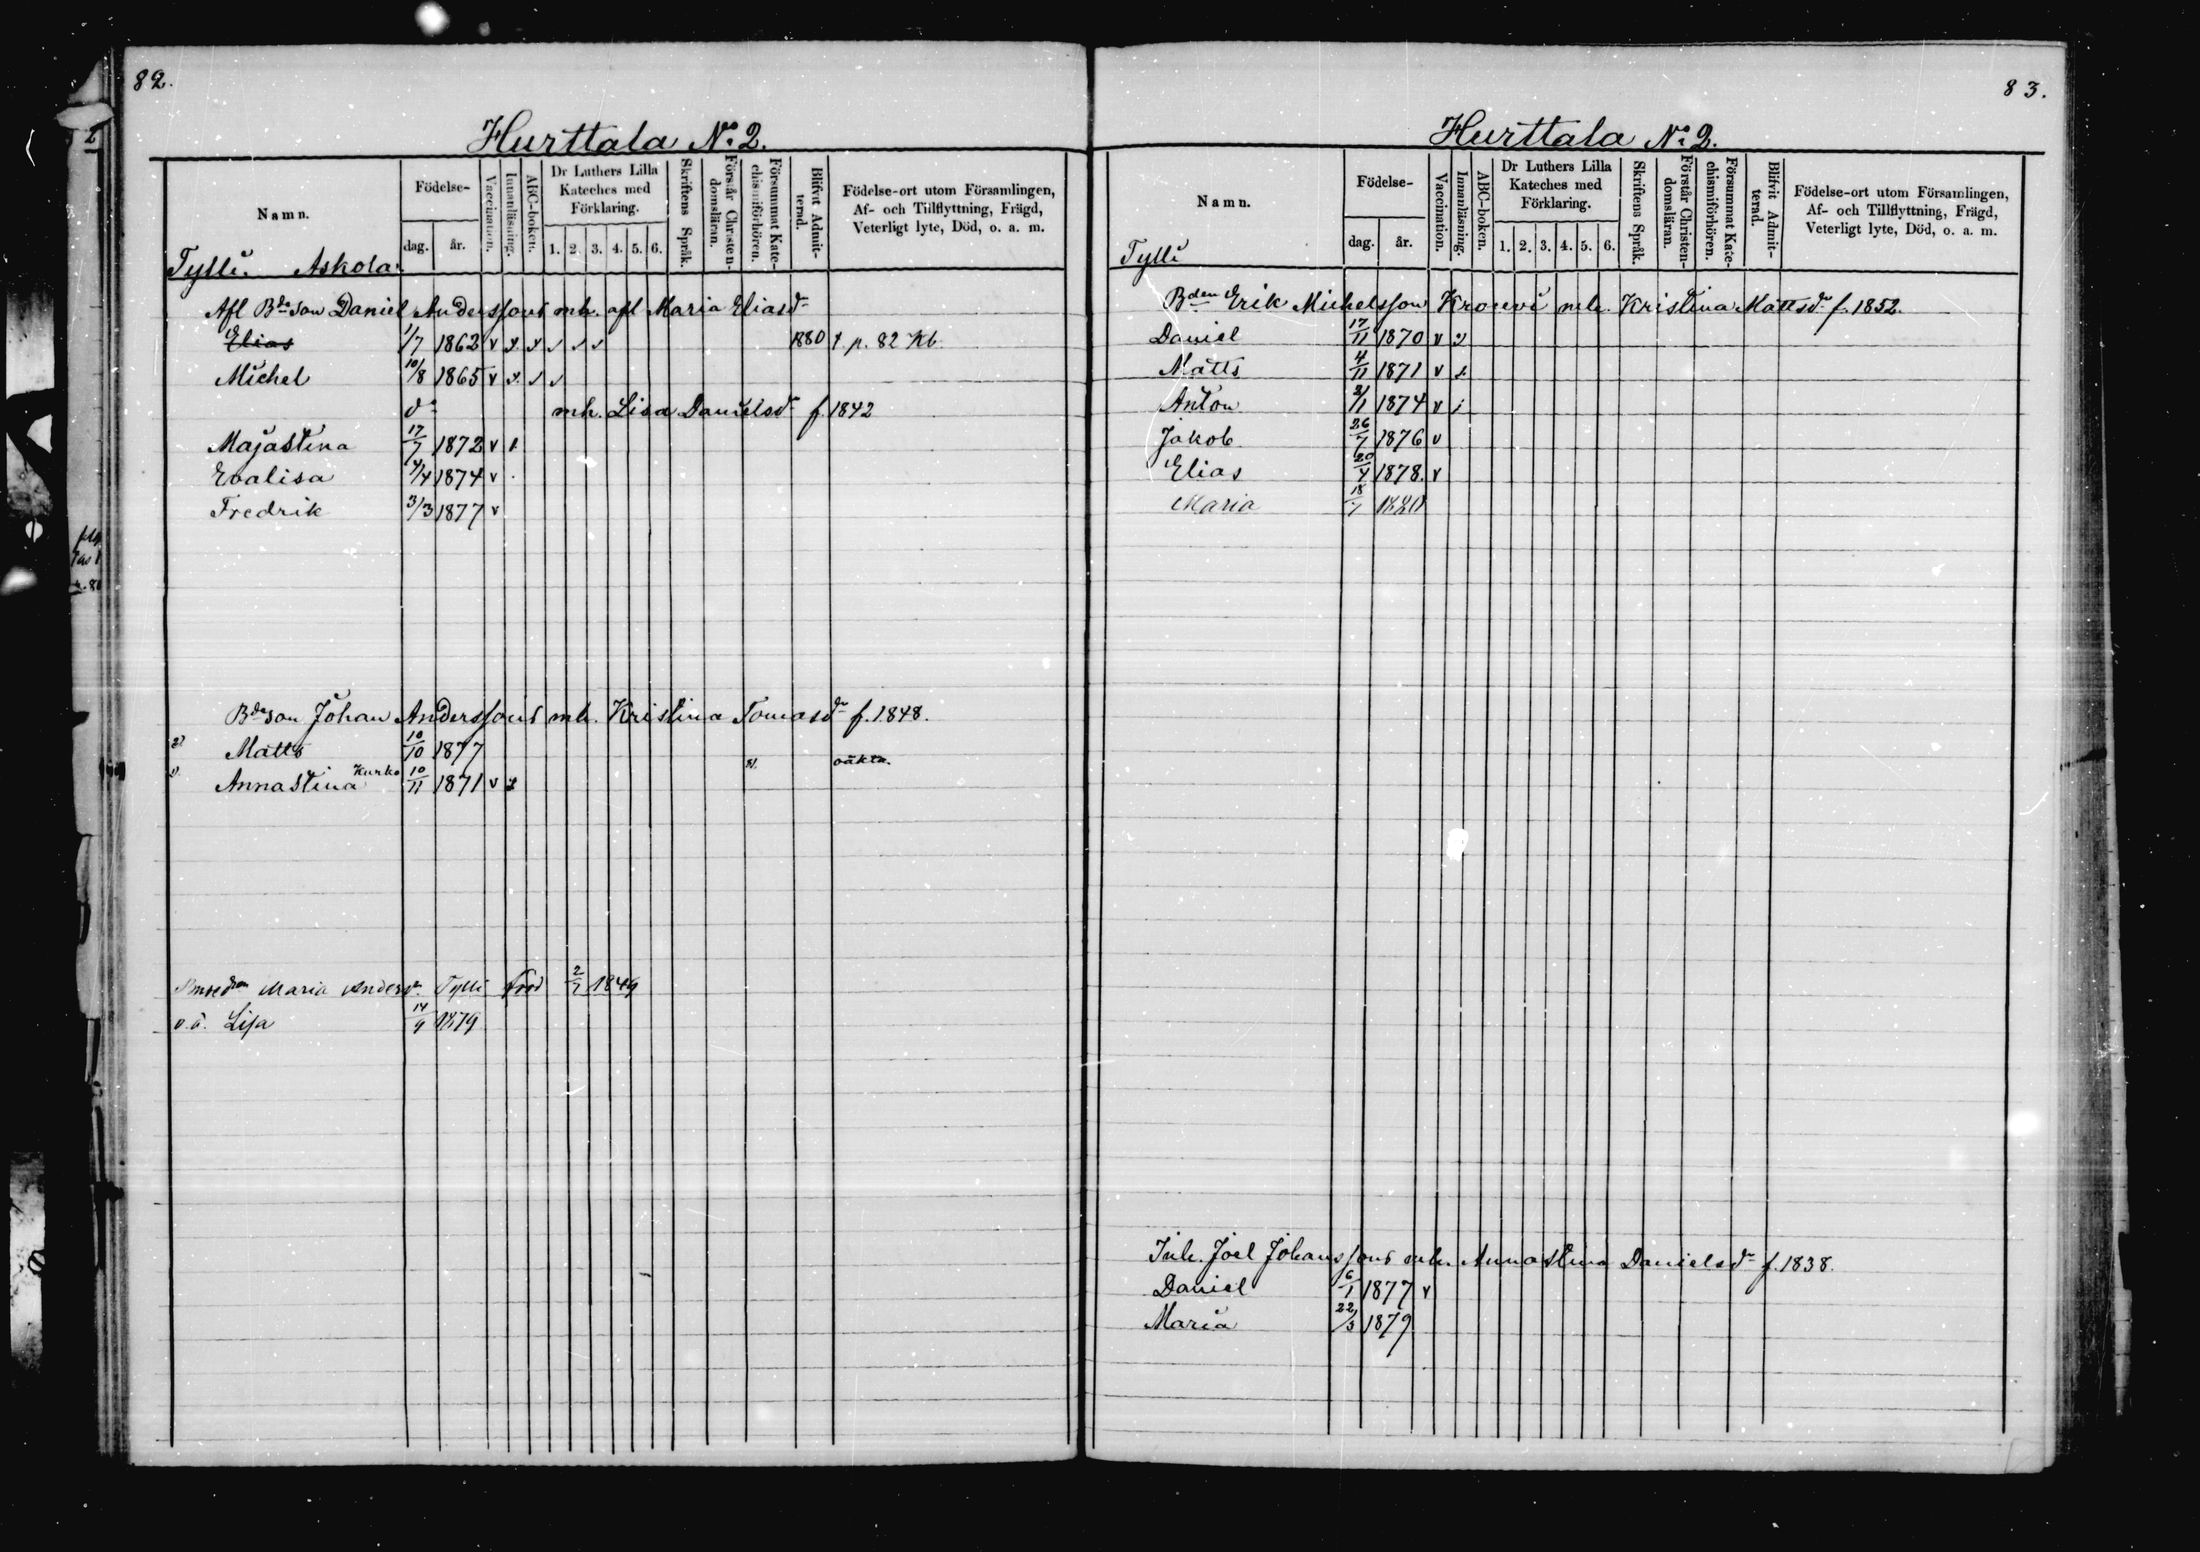 82.
Hurttala No 2.
Namn. Födelse- dag. år. Vaccination. Innanläsning. ABC-boken. Dr Luthers Lilla Kateches med Förklaring. 1. 2. 3. 4. 5. 6. Skriftens Språk. Förstår Christendomsläran. Försummat Katechismiförhören. Blifvit Admitterad. Födelse-ort utom Församlingen, Af- och Tillflyttning, Frägd, Veterligt lyte, Död, o. a. m.
Tylli. Askola
Afl Bde son Daniel Anderssons mh. afl Maria Eliasdr
Elias 1/7 1862 v 1880 p. 82 Kb.
Michel 10/8 1865 v
do mh. Lisa Danielsdr f. 1842
Majastina 17/7 1872 v
Evalisa 4/4 1874 v
Fredrik 3/3 1877 v
Bde son Johan Anderssons mh. Kristina Tomasdr f. 1848.
2) Matts 10/10 1877
1) Annastina Kurko 10/11 1871 v oäkta.
Maria Andersdr Tylli född 2/7 1849
o.ä. Lisa 14/9 1879
83.
Hurttala No 2.
Namn. Födelse- dag. år. Vaccination. Innanläsning. ABC-boken. Dr Luthers Lilla Kateches med Förklaring. 1. 2. 3. 4. 5. 6. Skriftens Språk. Förstår Christendomsläran. Försummat Katechismiförhören. Blifvit Admitterad. Födelse-ort utom Församlingen, Af- och Tillflyttning, Frägd, Veterligt lyte, Död, o. a. m.
Tylli
Bden Erik Michelsson Krouvi mh. Kristina Mattsdr f. 1852.
Daniel 17/11 1870 v
Matts 4/11 1871 v
Anton 2/1 1874 v
Jakob 26/7 1876 v
Elias 20/4 1878. v
Maria 18/7 1880
Inh. Joel Johanssons mh. Annastina Danielsdr f. 1838.
Daniel 6/1 1877 v
Maria 22/3 1879